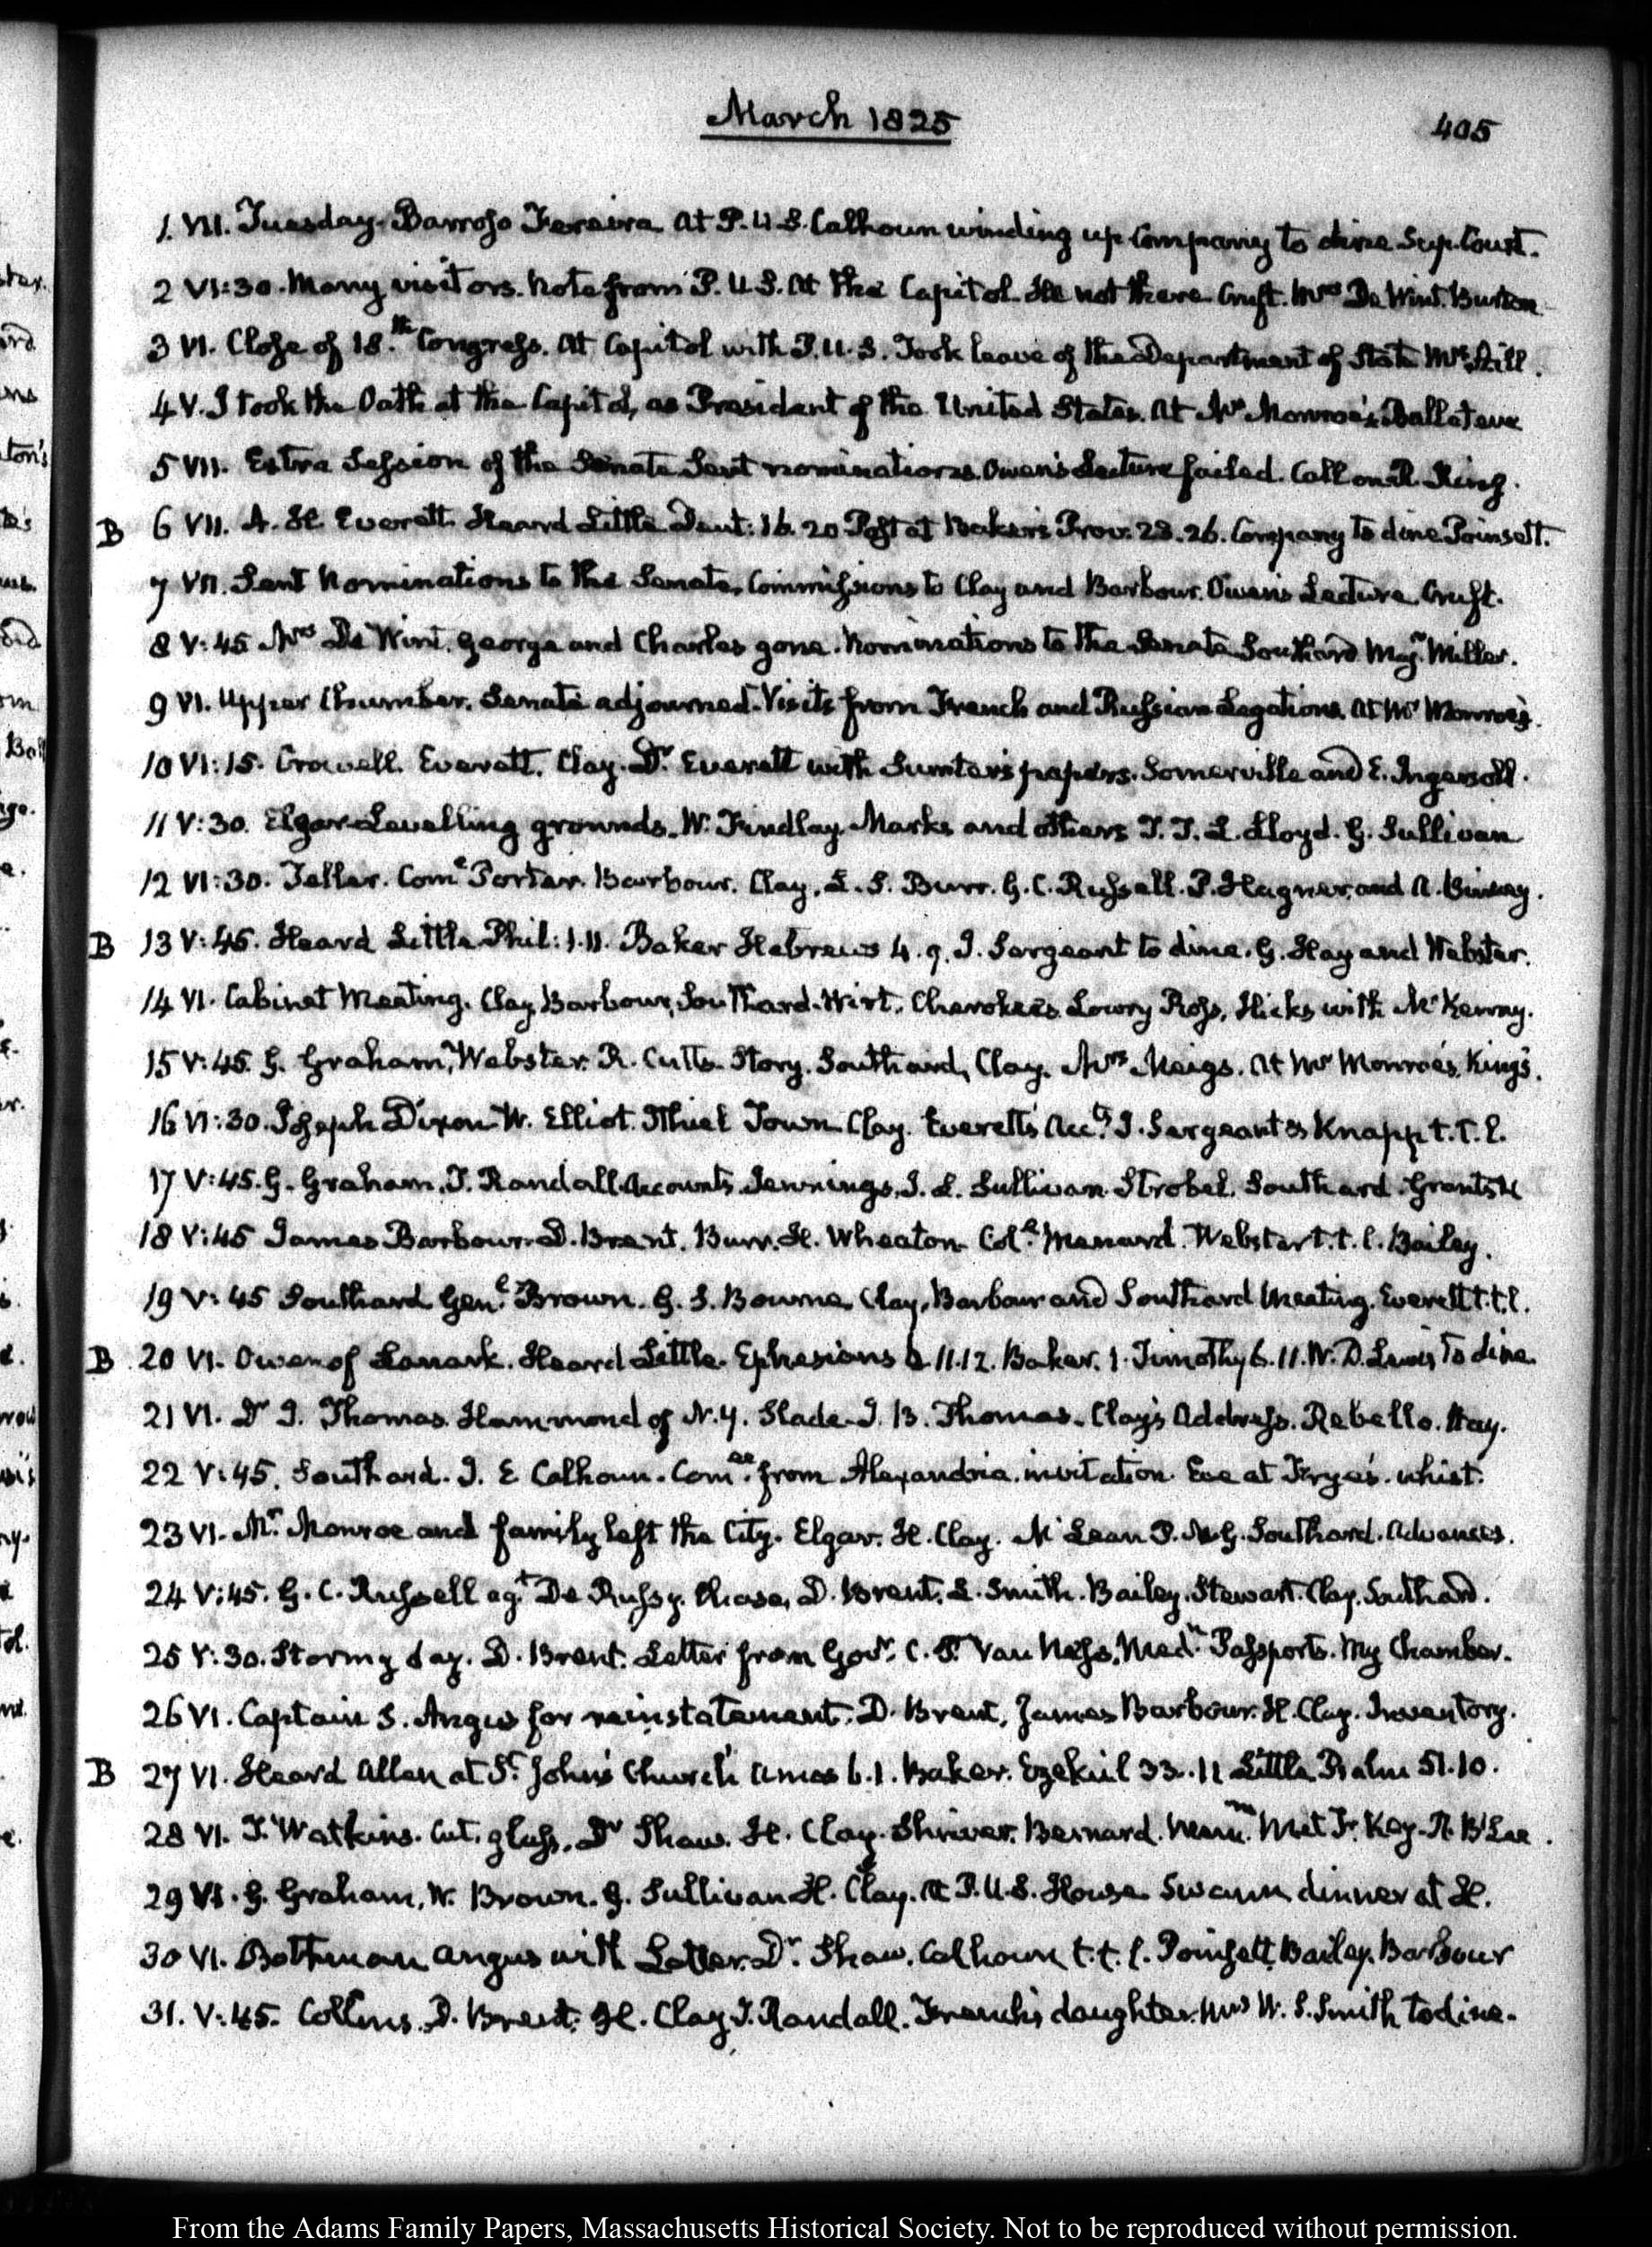 March 1825
405
1. VII. Tuesday. Barrozo Fereira at P. U.S. Calhoun winding up Company to dine Sup. Court.
2 VI:30. Many visitors. Note from P. U.S. At the Capitol. He not there Cruft. Mrs De Wint.
3 VI. Close of 18.th Congress. At Capitol with P. U. S. Took leave of the Department of State
4 V. I took the Oath at the Capitol, as President of the United States. At Mr Monroe's. Ball at eve
5 VII. Extra Session of the Senate Sent nominations. Owen's Lecture failed. Call on R. King.
B 6 VII. A. H. Everett. Heard Little Deut: 16. 20 Post at Baker's Prov: 23. 26. Company to dine Poinsett.
7 VII. Sent Nominations to the Senate. Commissions to Clay and Barbour. Owen's Lecture. Cruft.
8 V:45 Mrs De Wint. George and Charles gone. Nominations to the Senate Southard. Majr Miller.
9 VI. Upper Chamber. Senate adjourned. Visits from French and Russian Legations. At Mr Monroe's.
10 VI:15. Crowell. Everett. Clay. Dr Everett with Sumter's papers. Somerville and E. Ingersoll.
11 V:30. Elgar Levelling grounds. W. Findlay Marks and others T. T. L. Lloyd. G. Sullivan
12 VI:30. Come Porter. Barbour. Clay. Burr. G. C. Russell. P. Hagner, and A.
B 13 V:45. Heard Little. Phil: 1.11. Baker Hebrews 4. 9. J. Sergeant to dine. G. Hay and Webster.
14 VI. Cabinet Meeting. Clay, Barbour, Southard. Wirt. Cherokees Lowry Ross, Hicks with McKenney.
15 V:45. G. Graham, Webster. R. Cutts. Story. Southard, Clay. Mrs Meigs. At Mr Monroe's, King's.
16 VI:30. Joseph Dixon W. Elliot. Ithiel Town Clay. Everett's Acct. J. Sergeant & Knapp t. t. l.
17 V:45. G. Graham. T. Randall Accounts. Jennings. J. L. Sullivan Strobel. Southard.
18 V:45 James Barbour. D. Brent. Burr. H. Wheaton Coll. Menard. Webster t. t. l. Bailey.
19 V:45 Southard Genl. Brown. G. S. Bourne. Clay, Barbour and Southard Meeting. Everett t. t. l.
B 20 VI. Owen of Lanark. Heard Little. Ephesians 11.12. Baker. 1. Timothy 6. 11. W. D. Lewis to dine.
21 VI. Dr J. Thomas. Hammond of N. Y. Slade J. B. Thomas. Clay's Address. Rebello. Hay.
22 V:45. Southard. J. E Calhoun. Comee. from Alexandria. invitation. Eve at Frye's. whist.
23 VI. Mr. Monroe and family left the City. Elgar. H. Clay. McLean P. M. G. Southard. Advances.
24 V:45. G. C. Russell agt De Russy. Chase, D. Brent. L. Smith. Bailey. Stewart. Clay. Southard.
25 V:30. Stormy day. D. Brent. Letter from Govr. C. P. Van Ness. Medn. Passports. My Chamber.
26 VI. Captain S. Angus for reinstatement. D. Brent, James Barbour. H. Clay. Inventory.
B 27 VI. Heard Allen at St. John's Church Amos 6. 1. Baker. Ezekiel 33. 11 Little Psalm 51. 10.
28 VI. T. Watkins. Cut. glass. Dr Thaw. H. Clay. Shriver. Bernard. Met Fr. Key. R. B. Lee.
29 VI. G. Graham, W. Brown. G. Sullivan H. Clay. At P. U. S. House Swann dinner at H.
30 VI. Boltman Angus with Letter. Dr. Thaw. Calhoun t. t. l. Poinsett Bailey. Barbour
31. V:45. Collins. D. Brent. H. Clay. T. Randall. French's daughter. Mrs W. S. Smith to dine.
From the Adams Family Papers, Massachusetts Historical Society. Not to be reproduced without permission.